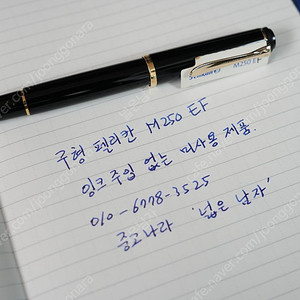 M250 EF
구형 펠리칸 M250 EF
잉크 주입 없는 미사용 제품.
010-6778-3525
중고나라 '넓은 남자'